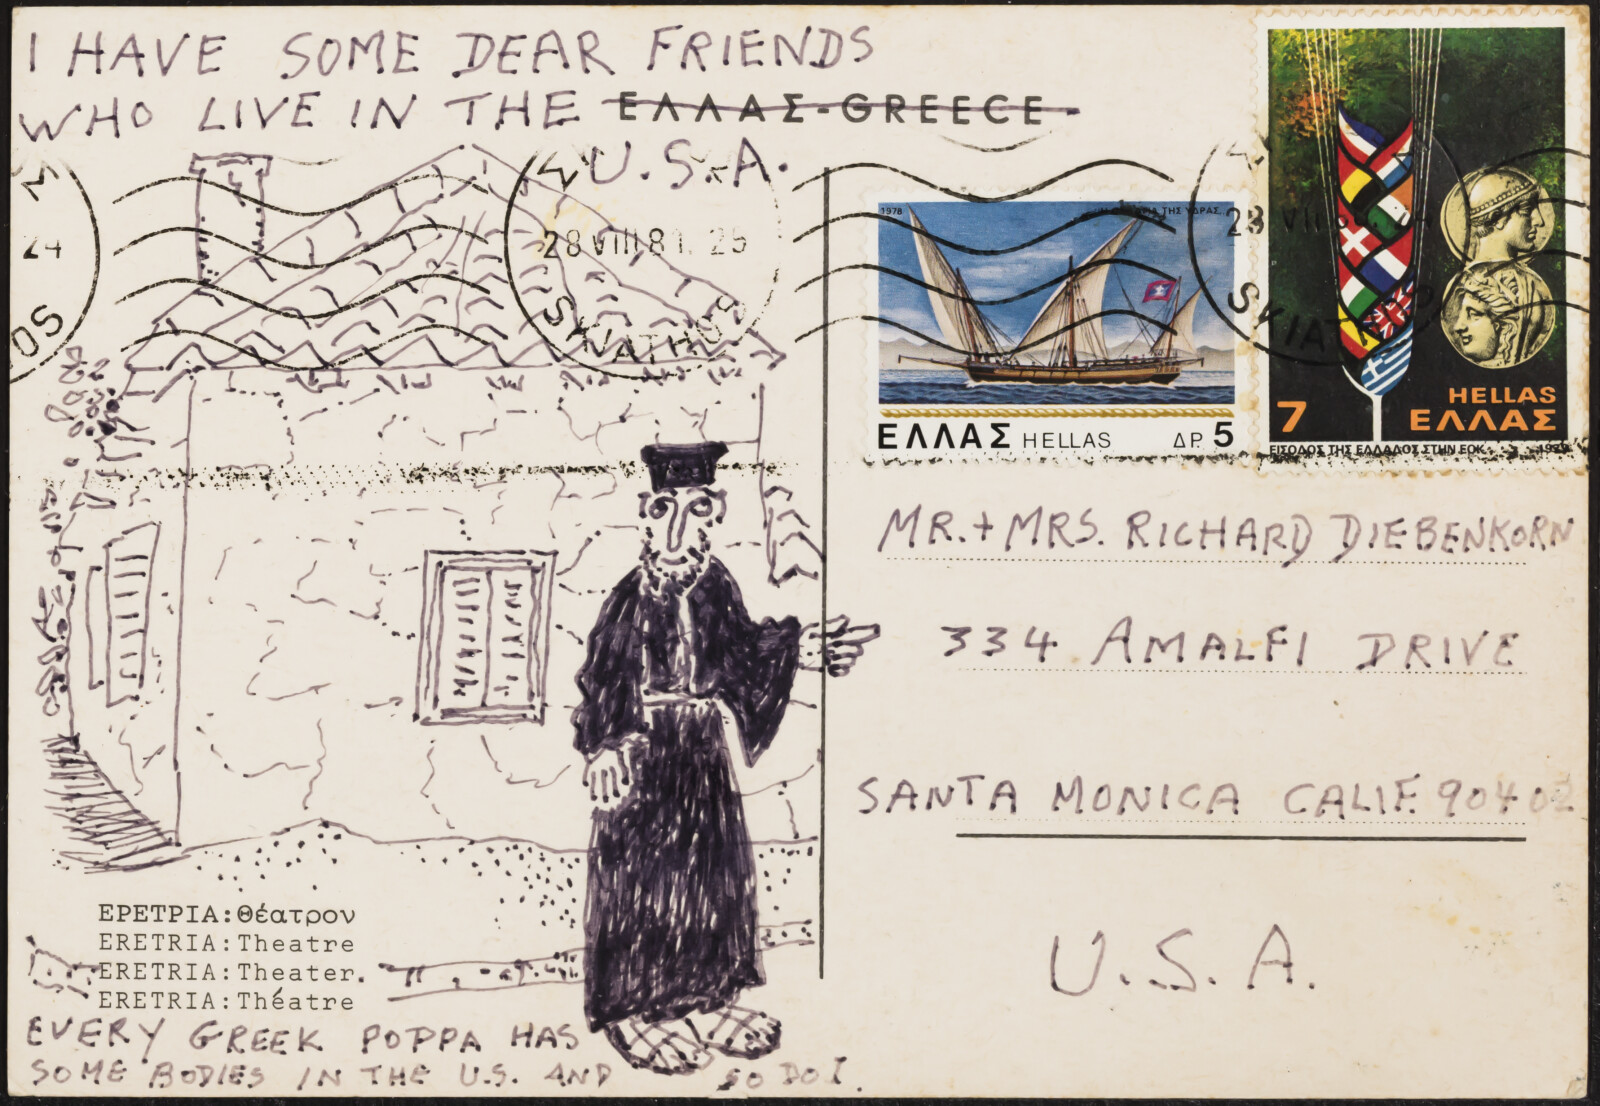 I HAVE SOME DEAR FRIENDS
WHO LIVE IN THE ΕΛΛΑΣ-GREECE
U.S.A.
28 VIII 81. 25
SKIATHOS
24
1978
ΤΗΣ ΥΔΡΑΣ
ΕΛΛΑΣ HELLAS ΔΡ. 5
HELLAS
7 ΕΛΛΑΣ
ΕΙΣΟΔΟΣ ΤΗΣ ΕΛΛΑΔΟΣ ΣΤΗΝ ΕΟΚ 1979
MR. + MRS. RICHARD DIEBENKORN
334 AMALFI DRIVE
SANTA MONICA CALIF. 90402
U.S.A.
ΕΡΕΤΡΙΑ:Θέατρον
ERETRIA:Theatre
ERETRIA:Theater.
ERETRIA:Théatre
EVERY GREEK POPPA HAS
SOME BODIES IN THE U.S. AND SO DO I.